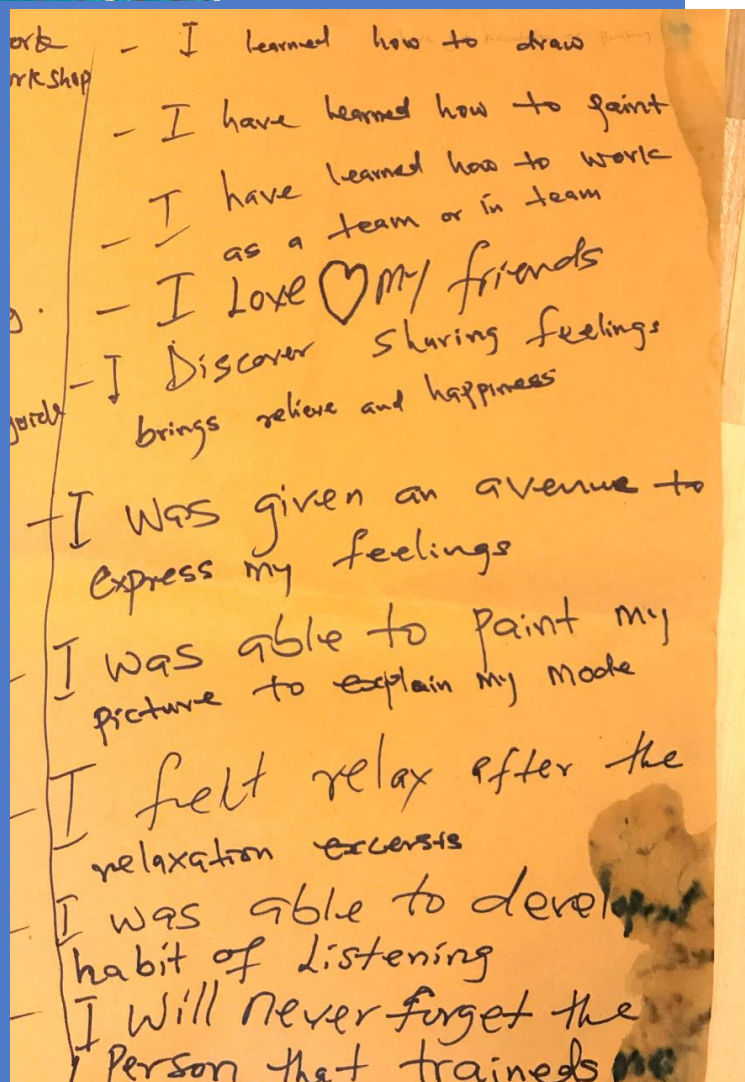 ork
rkshop
- I learned how to draw
- I have learned how to paint
- I have learned how to work
as a team or in team
- I Love ♡ my friends
- I Discover sharing feelings
brings relieve and happiness
- I was given an avenue to
express my feelings
- I was able to paint my
picture to explain my mode
- I felt relax after the
relaxation excersis
- I was able to develop
habit of Listening
- I will never forget the
Person that traineds me